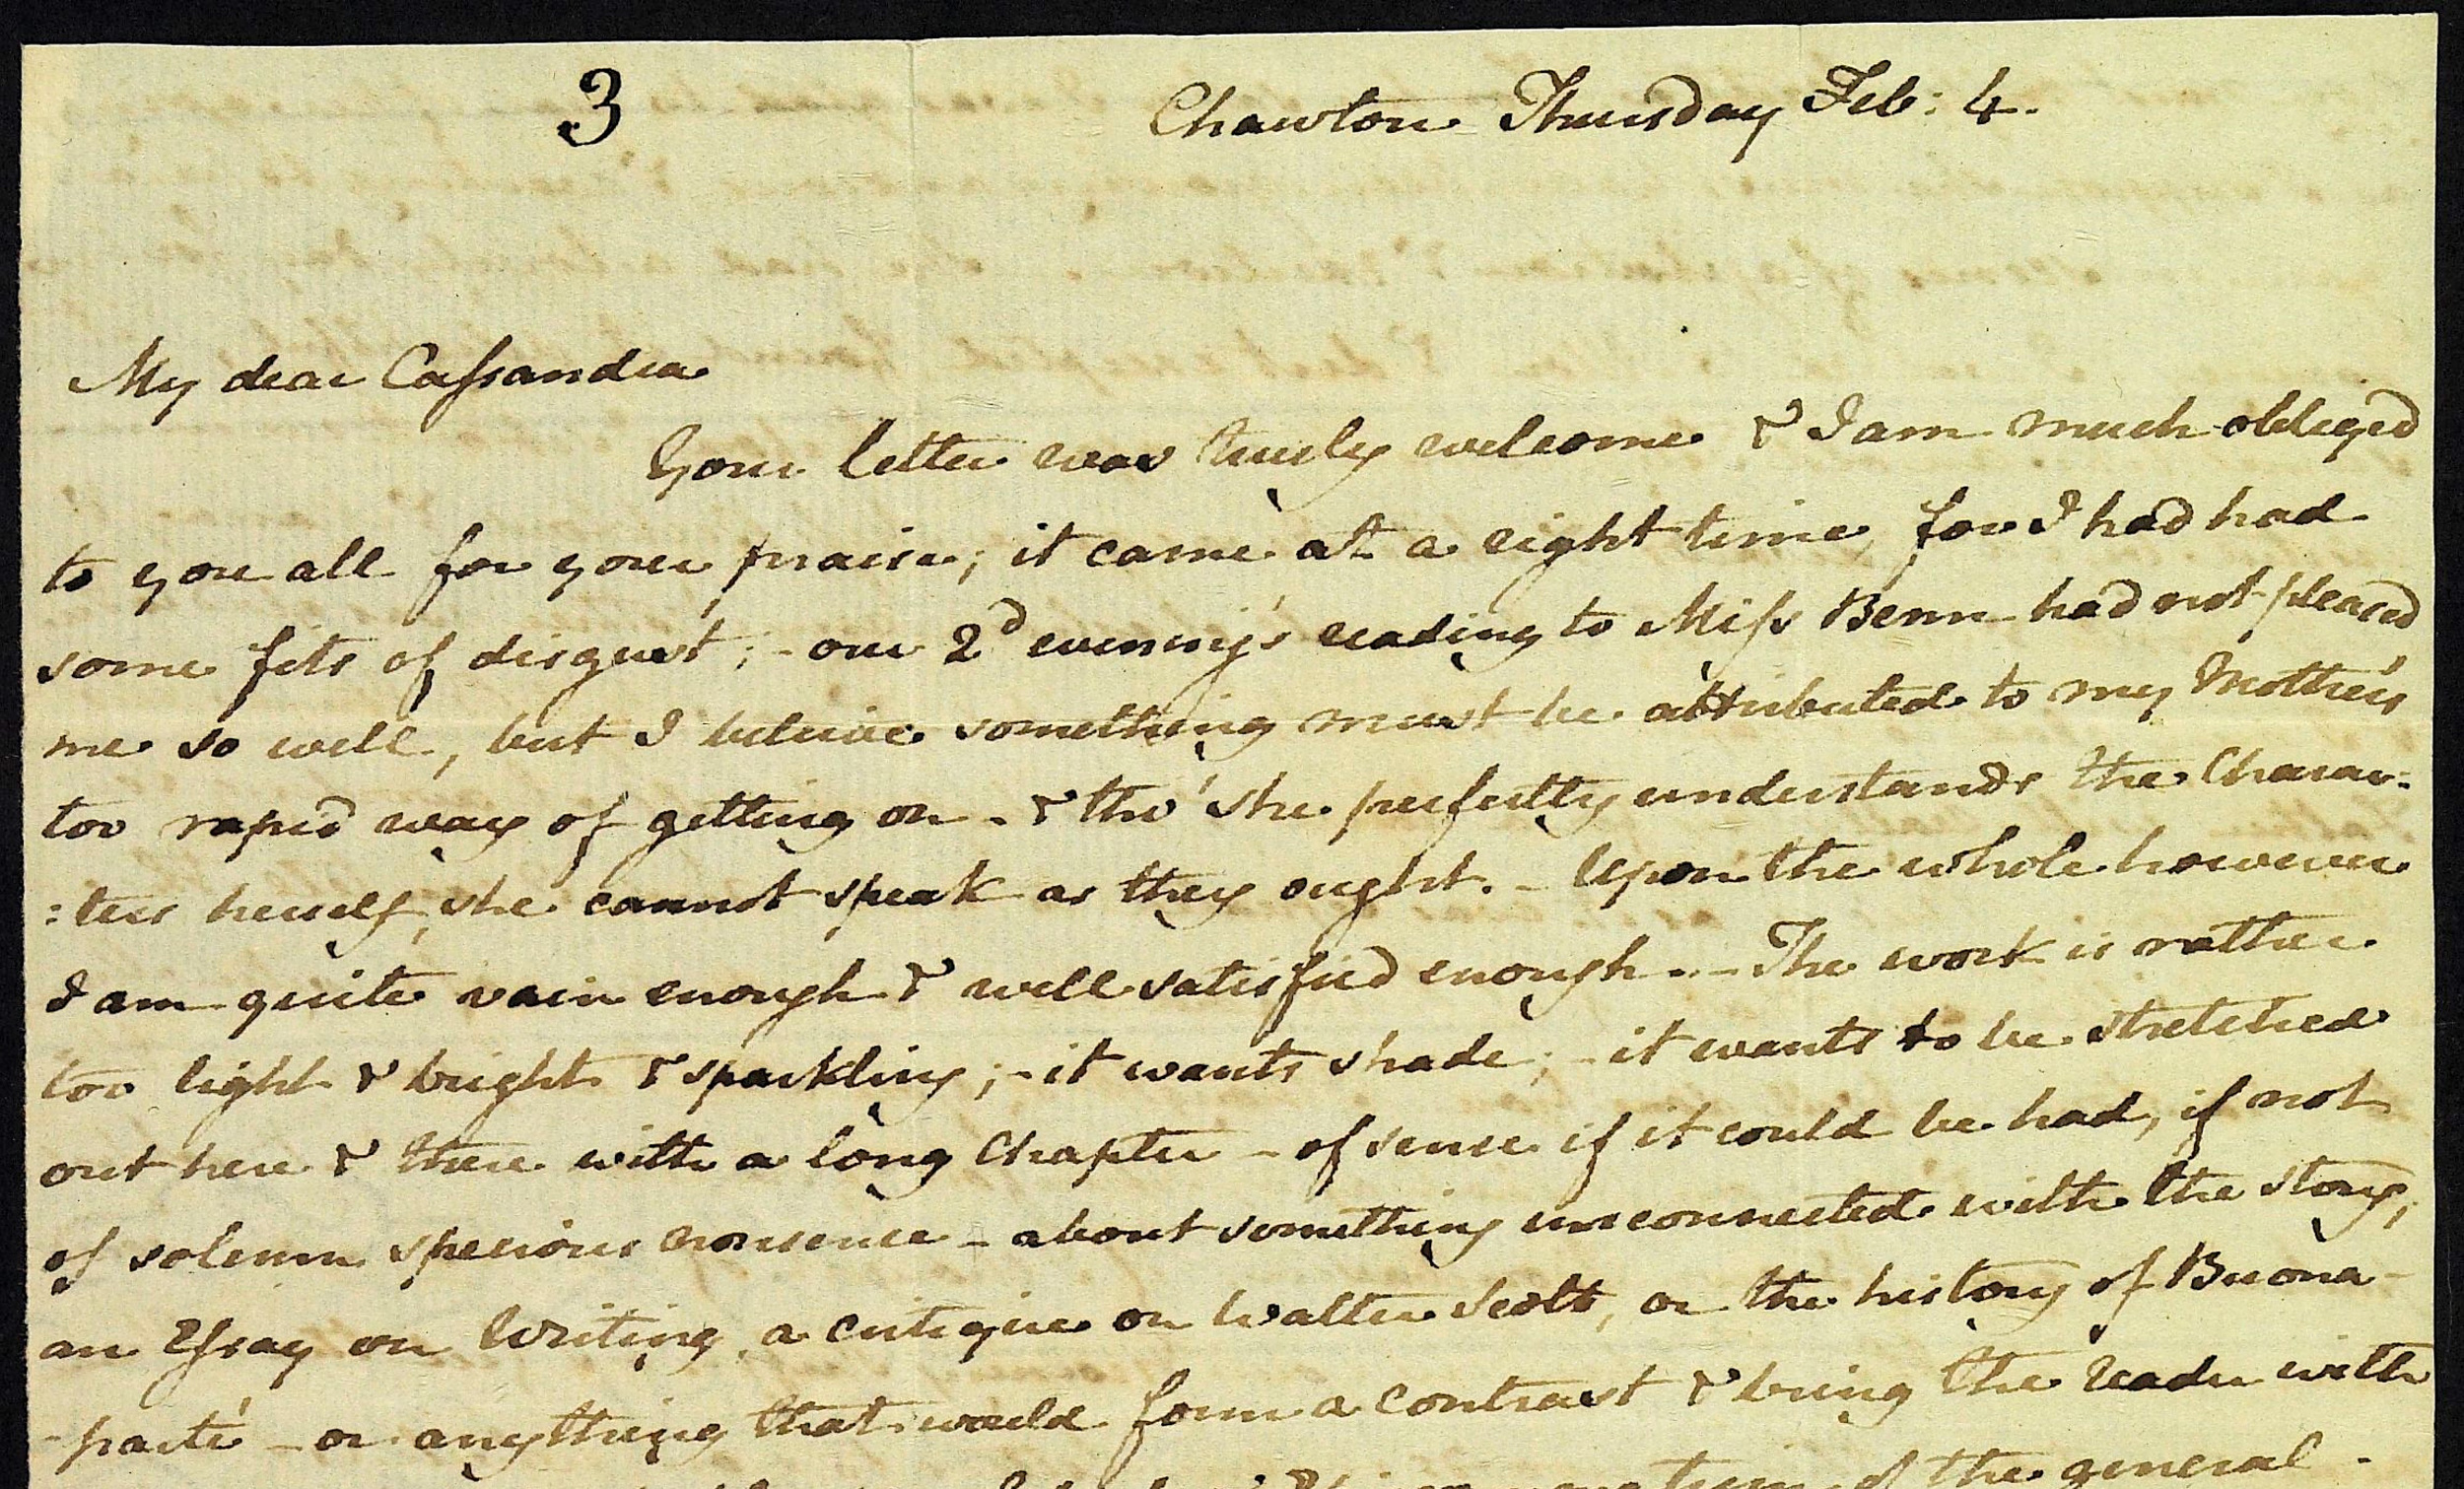 3
Chawton Thursday Feb: 4.
My dear Caſsandra
Your letter was truly welcome & I am much obliged
to you all for your praise; it came at a right time, for I had had
some fits of disgust; - our 2d evening's reading to Miſs Benn had not pleased
me so well, but I beleive something must be attributed to my Mother's
too rapid way of getting on - & tho' she perfectly understands the Charac-
:ters herself, she cannot speak as they ought. - Upon the whole however
I am quite vain enough & well satisfied enough. - The work is rather
too light & bright & sparkling; - it wants shade; - it wants to be stretched
out here & there with a long Chapter - of sense if it could be had, if not
of solemn specious nonsense - about something unconnected with the story;
an Eſsay on Writing, a critique on Walter Scott, or the history of Buona-
-parté - or anything that would form a contrast & bring the reader with
of the general